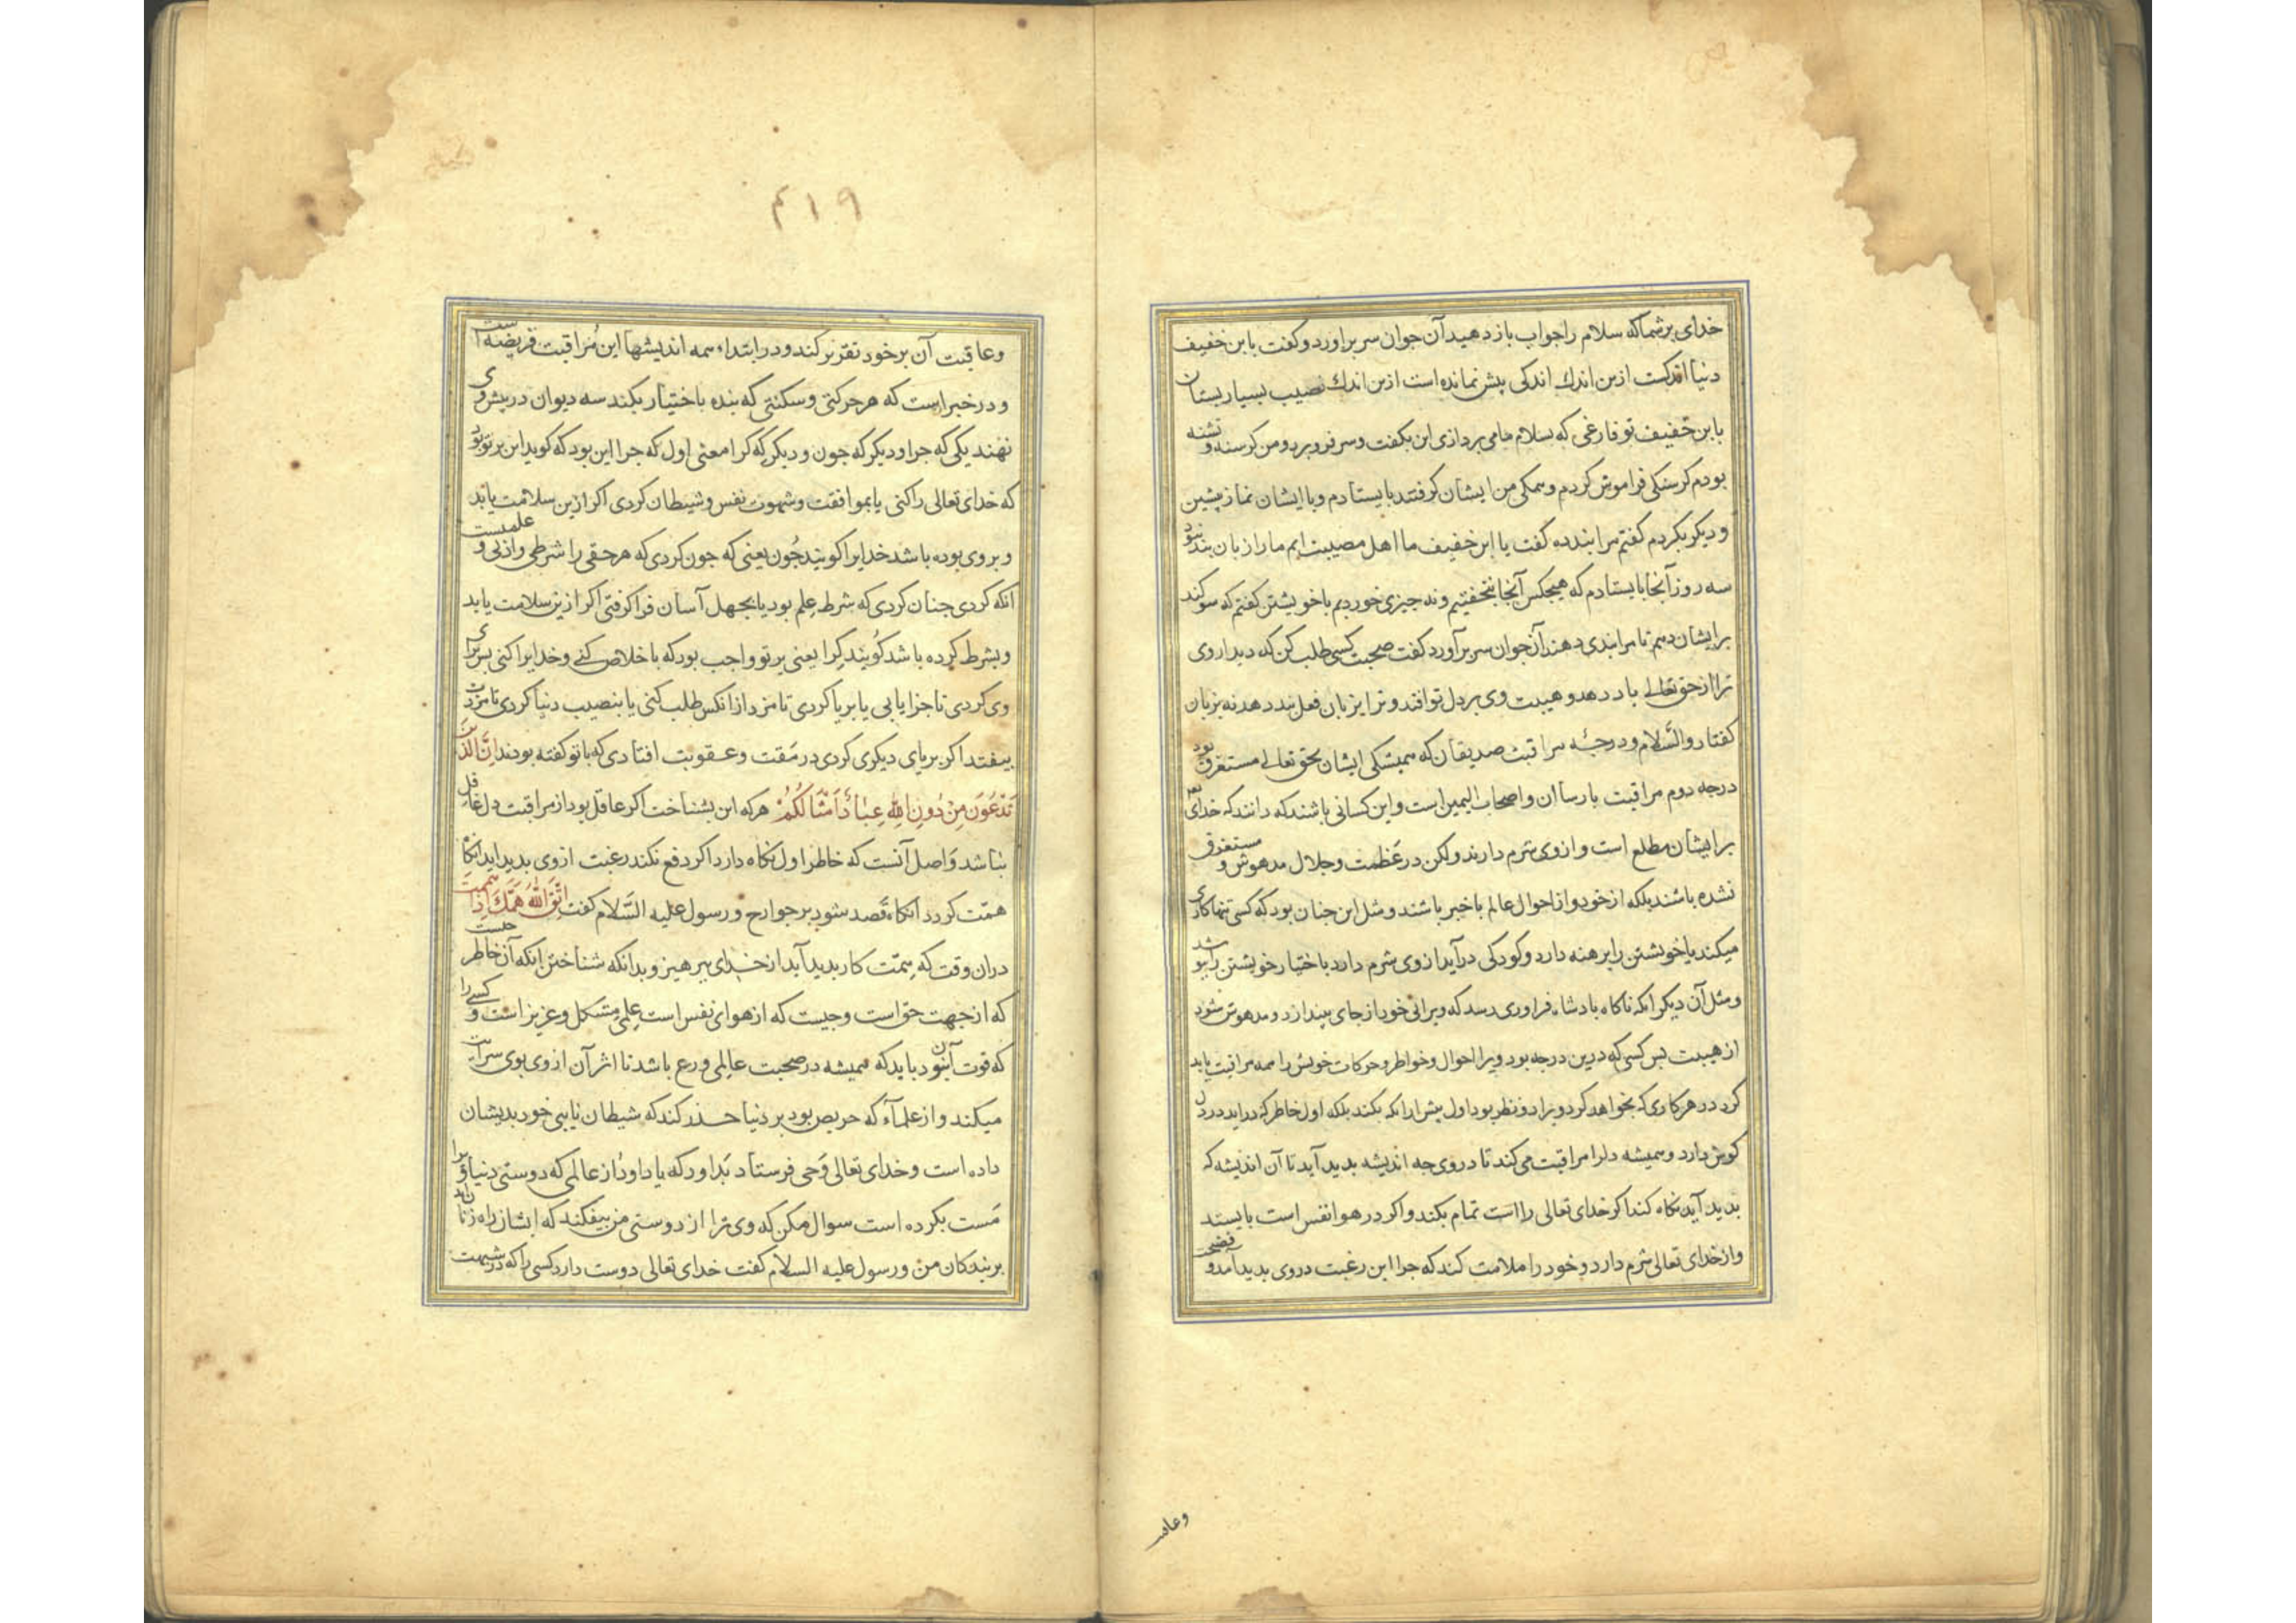 خدای بر شما که سلام را جواب باز دهید آن جوان سر براورد و کفت یا بن خفیف
دنیا اندکست ازین اندك اندکی بیش نمانده است ازین اندك نصیب بسیار بستان
یا بن خفیف تو فارغی که بسلام ما می پردازی این بکفت و سر فرو برد و من کرسنه و تشنه
بودم کرسنکی فراموش کردم و همکی من ایشان کرفتند بایستادم و با ایشان نماز پیشین
و دیکر بکردم کفتم مرا پند ده کفت یا ابن خفیف ما اهل مصیبت ایم ما را زبان پند نبود
سه روز آنجا بایستادم که هیچکس آنجا نخفتیم و نه چیزی خوردیم با خویشتن کفتم که سوکند
بر ایشان دهم تا مرا پندی دهند آن جوان سر برآورد کفت صحبت کسی طلب کن که دیدار وی
ترا از حق تعالی یاد دهد و هیبت وی بر دل تو افتد و ترا بزبان فعل پند دهد نه بزبان
کفتار والسّلام و درجهٔ مراقبت صدیقان که همیشکی ایشان بحق تعالی مستغرق بود
درجه دوم مراقبت پارسا ان و اصحاب الیمین است و این کسانی باشند که دانند که خدای
بر ایشان مطلع است و از وی شرم دارند ولکن در عَظمت و جلال مدهوش و مستغرق
نشده باشند بلکه از خود و از احوال عالم با خبر باشند و مثل این چنان بود که کسی تنها کاری
میکند یا خویشتن را برهنه دارد و کودکی درآید از وی شرم دارد با اختیار خویشتن را بپوشد
و مثل آن دیکر انکه ناکاه بادشاه فرا وی رسد که ویرانی خود از جای بیندازد و مدهوش شود
از هیبت پس کسی که درین درجه بود ویرا احوال و خواطر و حرکات خویش را همه مراقبت باید
کرد در هر کاری که بخواهد کرد ویرا دو نظر بود اول پیش ازانکه بکند بلکه اول خاطر که دراید در دل
کوش دارد و همیشه دلرا مراقبت می کند تا در وی چه اندیشه بدید آید تا آن اندیشه که
بدید آید نکاه کند اکر خدای تعالی را است تمام بکند و اکر در هوا نفس است بایستد
و از خدای تعالی شرم دارد و خود را ملامت کند که چرا این رغبت در وی بدید آمد و فضیحت
وعاقبت
۴۱۹
و عاقبت آن بر خود تقریر کند و در ابتداء همه اندیشها این مُراقبت فریضه است
و در خبر است که هر حرکتی و سکنتی که بنده باختیار بکند سه دیوان در پیش وی
نهند یکی که چرا و دیکر که چون و دیکر که کرا معنی اول که چرا این بود که کوید این بر تو بود
که خدای تعالی را کنی یا بموافقت و شهوت نفس و شیطان کردی اکر ازین سلامت یابد
و بر وی بوده باشد خدایرا کویند چُون یعنی که چون کردی که هر حقی را شرطی و ادبی و علمست
انکه کردی چنان کردی که شرط علم بود یا بجهل آسان فرا کرفتی اکر ازین سلامت یابد
و بشرط کرده باشد کویند کِرا یعنی بر تو واجب بود که با خلاص کنی و خدایرا کنی پس برای
وی کردی تا جزا یابی یا بریا کردی تا مزد ازانکس طلب کنی یا بنصیب دنیا کردی تا مزدت
بیفتد اکر بریای دیکری کردی در مَقت و عقوبت افتادی که با تو کفته بودند اِنَّ الَّذِینَ
تَدْعُونَ مِنْ دُونِ اللهِ عِبَادٌ اَمْثَالُکُمْ هر که این بشناخت اکر عاقل بود از مراقبت دل غافل
نباشد و اصل آنست که خاطر اول نکاه دارد اکر دفع نکند رغبت از وی بدید اید انکاه
همّت کردد انکاه قصد شود بر جوارح و رسول علیه السّلام کفت اِتَّقِ اللهَ هَمَّكَ اِذَا هممت
دران وقت که همّت کار بدید آید از خدای بپرهیز و بدانکه شناختن انکه آن خاطر چیست
که از جهت حق است و چیست که از هوای نفس است علمی مشکل و عزیز است و کسی را
که قوت آن نبود باید که همیشه در صحبت عالمی ورع باشد تا اثر آن از وی بوی سرایت
میکند و از علماء که حریص بود بر دنیا حذر کند که شیطان نایبی خود بدیشان
داده است و خدای تعالی وَحی فرستاد بَداود که یا داود از عالمی که دوستی دنیا ویرا
مَست بکرده است سوال مکن که وی ترا از دوستی من بیفکند که ایشان راه زنانند
بر بندکان من و رسول علیه السلام کفت خدای تعالی دوست دارد کسی را که در شبهت